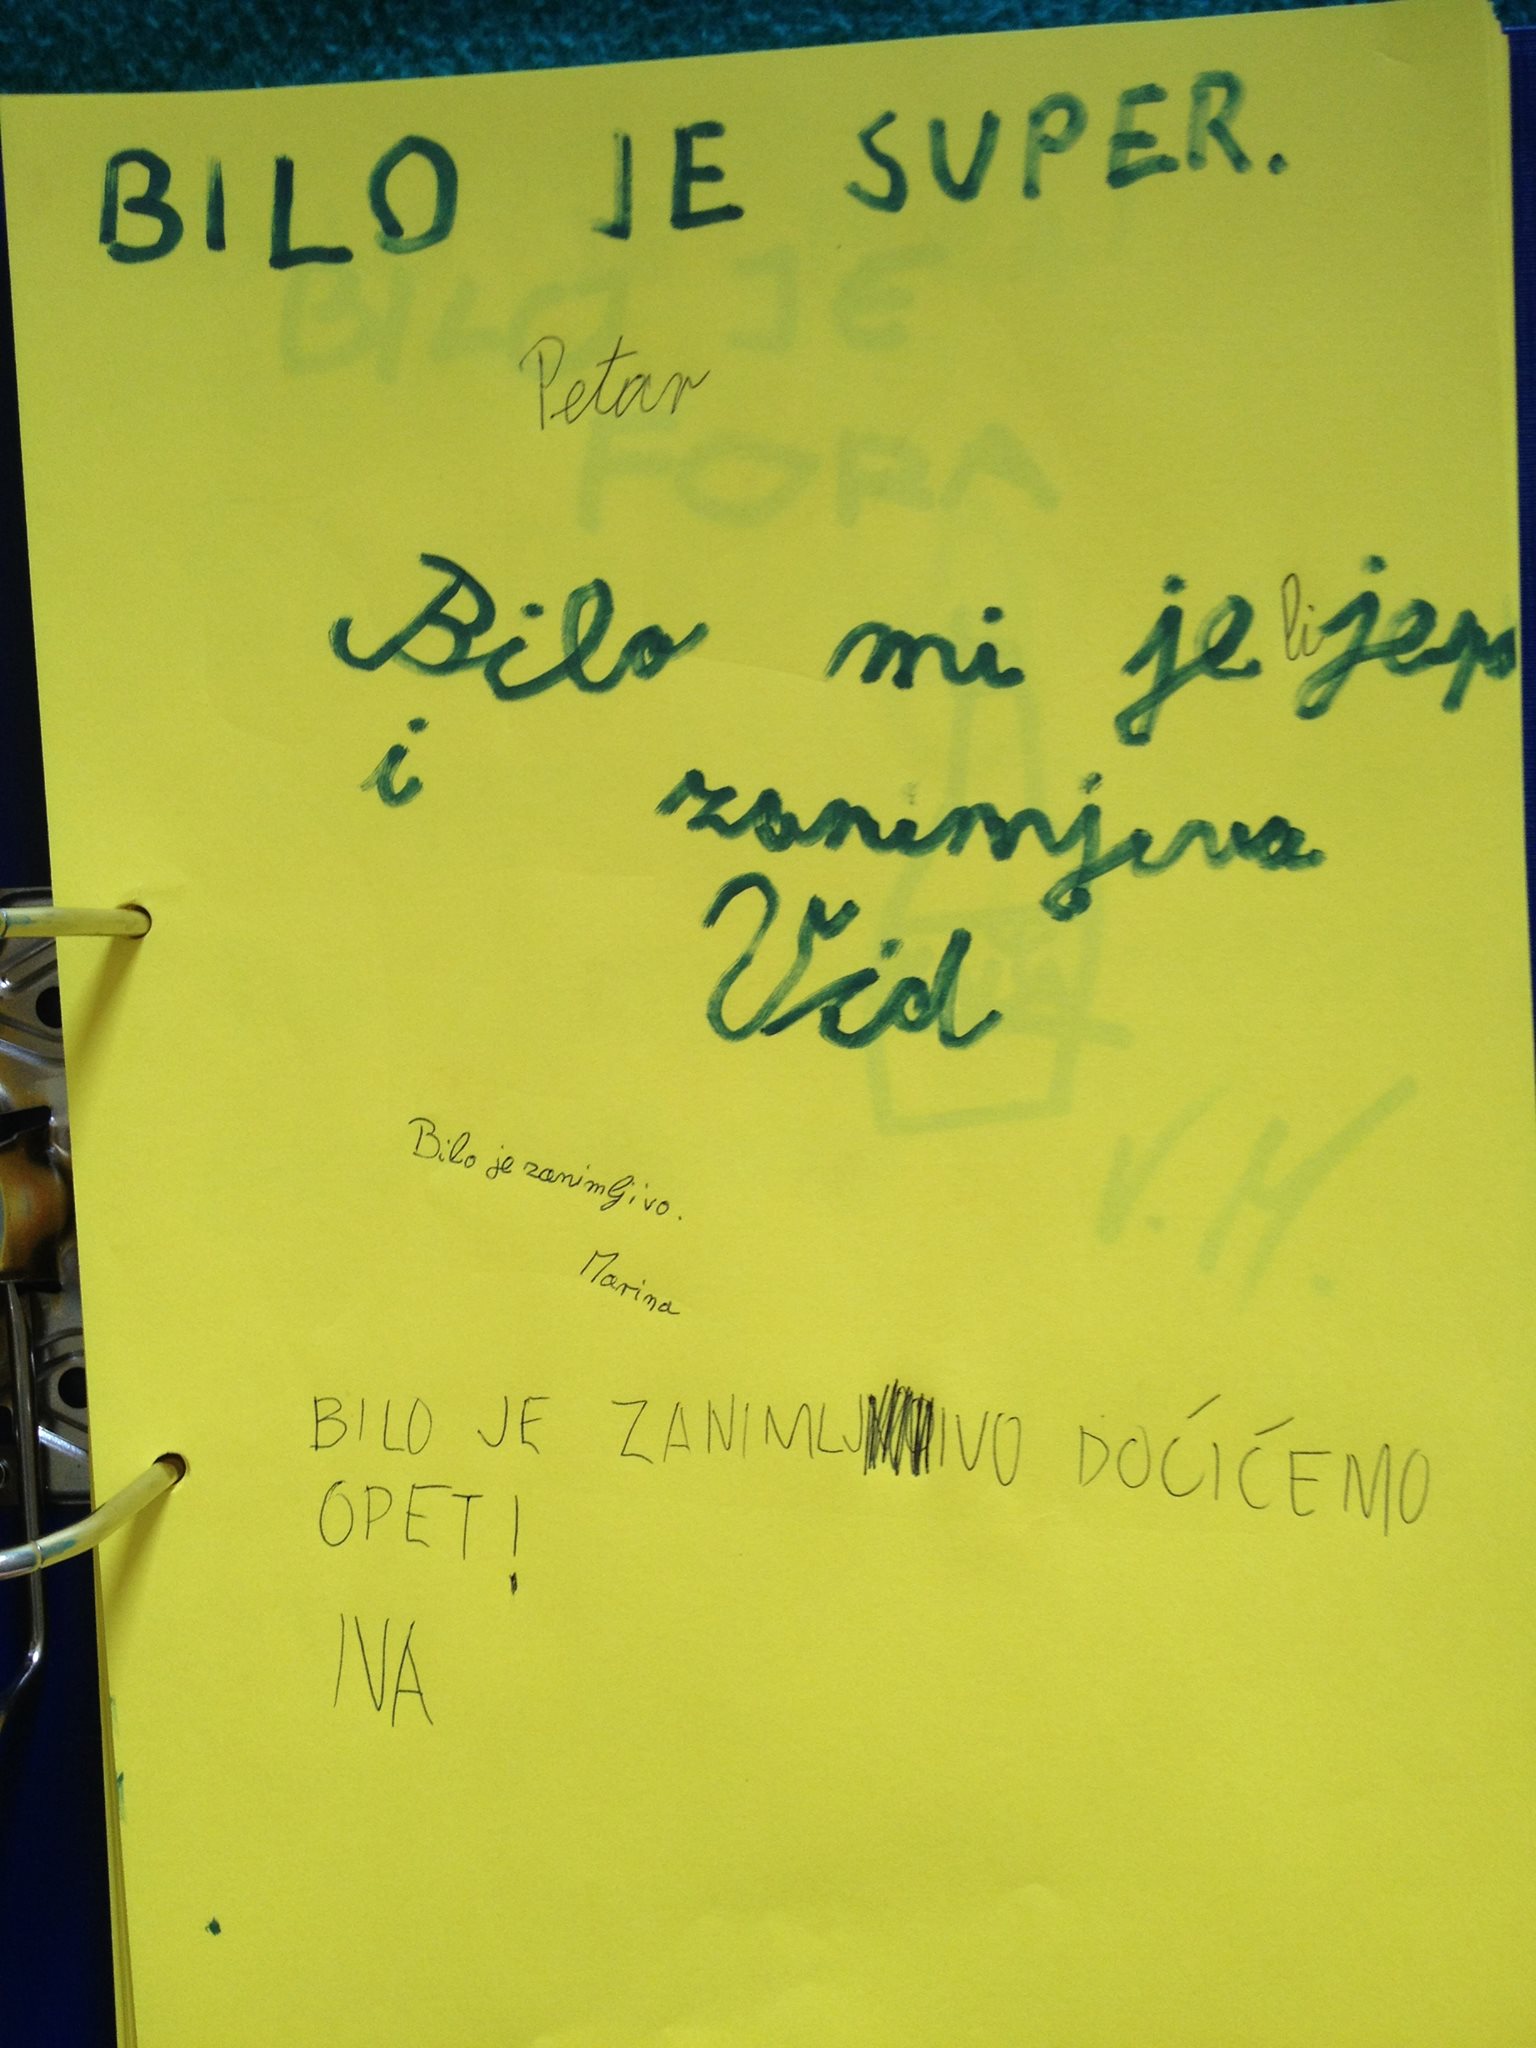 BILO JE SUPER.
BILO JE
Petar
FORA
Bilo mi je lijepo
i zanimjiva
Vid
Bilo je zanimljivo.
V. H.
Marina
BILO JE ZANIMLJIVO DOĆIĆEMO
OPET!
IVA